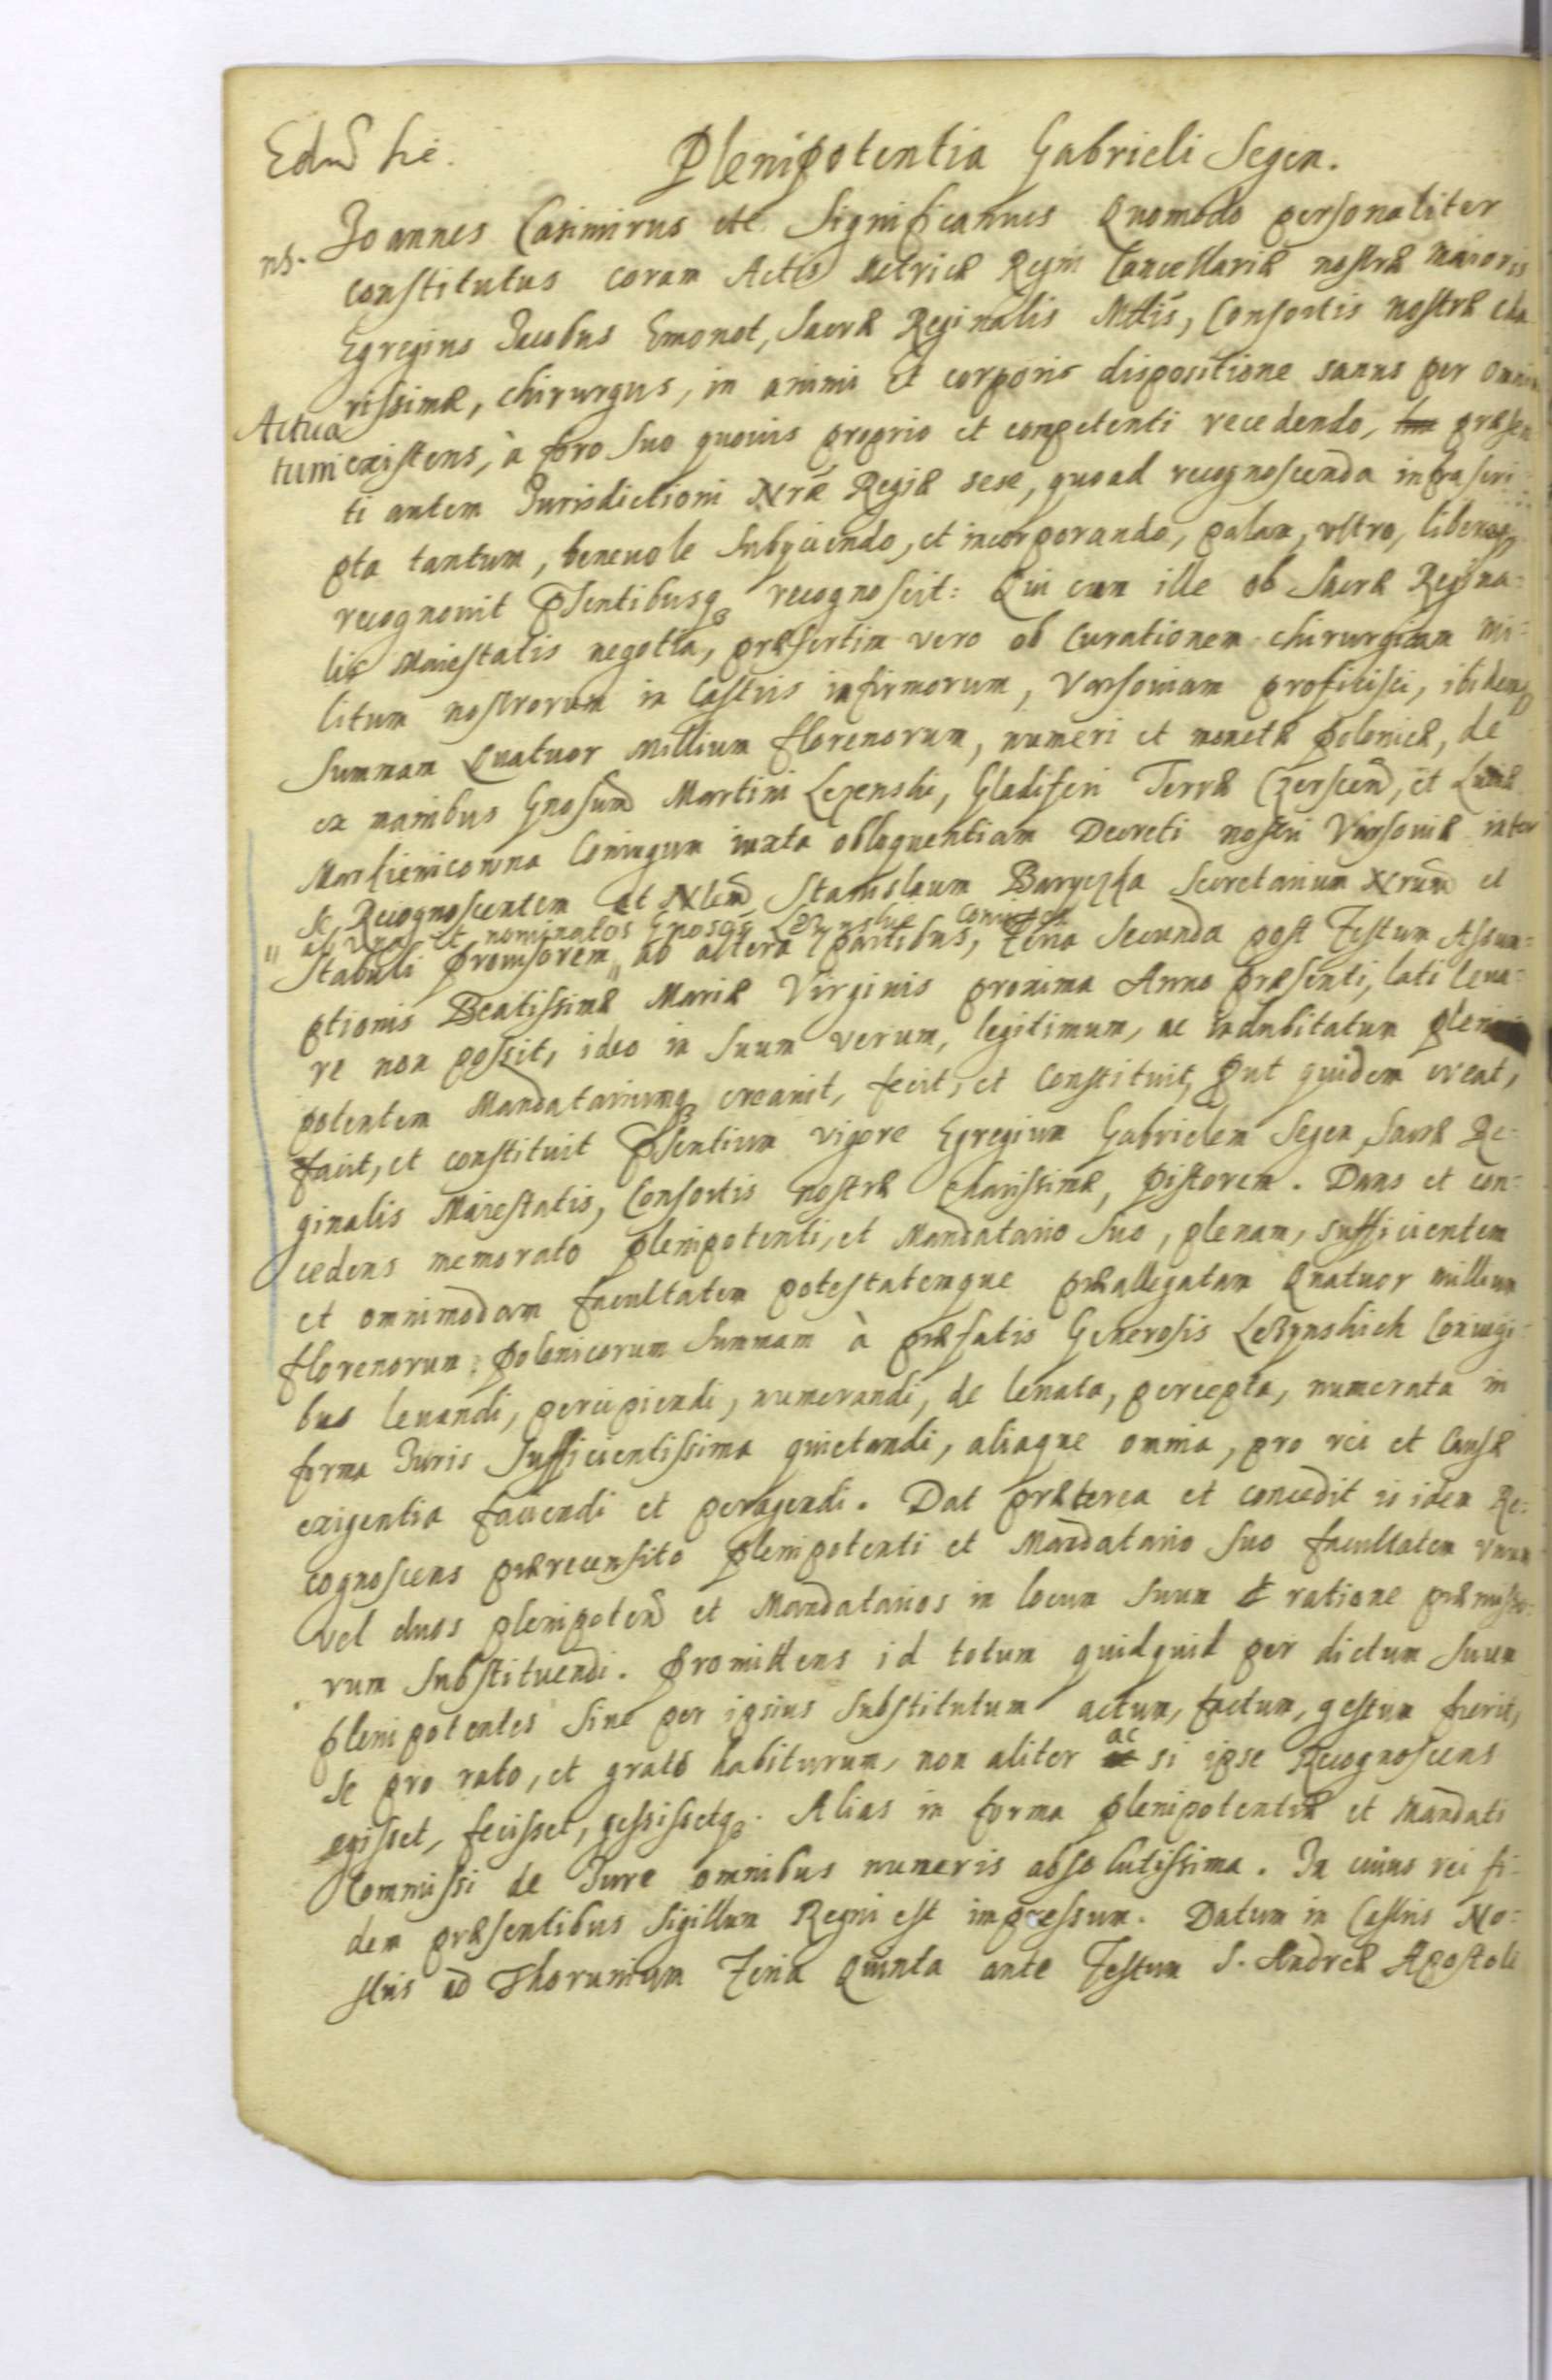 Plenipotentia Gabrieli Segen.
Joannes Casimirus etc Significamus Quomodo personaliter
ns.
constitutus coram Actis Metricæ Regni Cancellariæ nostræ maioris
Egregius Jacobus Emonot, Sacræ Reginalis Mttis, Consortis nostræ cha
rissimæ, chirurgus, in animi et corporis dispositione sanus per omnia
Actua
tum
existens, à foro suo quovis proprio et competenti recedendo, præsen
ti autem Jurisdictioni Nræ Regiæ sese, quoad recognoscenda infra scri:
pta tantum, benevole subyciendo, et incorporando, palam, vltro, libereq
recognovit Psentibusq recognoscit: Qui cum ille ob Sacræ Regina:
lis Maiestatis negotia, præsertim vero ob Curationem chirurgicam mi:
litum nostrorum in Castris infirmorum, Varsoviam proficisci, ibidemq
Summam Quatuor Millium florenorum, numeri et monetæ Polonicæ, de
ex manibus Gnosum Martini Lezenski, Gladiferi Terræ Czerscen, et
Markiewicowna Coniugum iuxta obloquentiam Decreti nostri Varsoviæ inter
se Recognoscentem et Nlem Stanislaum Baryczka Secretarium Nrum et
" ab vna et nominatos Gnosos Lezynskie Coniuges
Stabuli provisorem " ab altera partibus, Feria Secunda post Festum Assum:
ptionis Beatissimæ Mariæ Virginis proxima Anno præsenti, lati leva:
re non possit, ideo in Suum verum, legitimum, ac indubitatum pleni
potentem Mandatariumq creavit, fecit, et Constituit, Put quidem creat,
facit, et constituit Psentium vigore Egregium Gabrielem Segen, Sacræ Re:
ginalis Maiestatis, Consortis nostræ Charissimæ, Pistorem. Dans et con:
cedens memorato plenipotenti, et Mandatario suo, plenam, sufficientem
et omnimodam facultatem potestatemque præallegatam Quatuor millium
florenorum Polonicorum Summam à præfatis Generosis Lezynskich Coniugi:
bus levandi, percipiendi, numerandi, de levata, percepta, numerata in
forma Juris Sufficientissima quietandi, aliaque omnia, pro rei et Causæ
exigentia faciendi et peragendi. Dat præterea et concedit is idem Re:
cognoscens prærecensito plenipotenti et Mandatario suo facultatem vnum
vel duos plenipoten et Mandatarios in locum suum ratione præmisso:
rum substituendi. Promittens id totum quidquid per dictum suum
plenipotentes sive per ipsius substitutum actum, factum, gestum fuerit,
se pro rato, et grato habiturum, non aliter ac si ipse Recognoscens
egisset, fecisset, gessissetq. Alias in forma plenipotentiæ et Mandati
Commissi de Jure omnibus numeris absolutissima. In cuius rei fi:
dem præsentibus Sigillum Regni est impressum. Datum in Castris No:
stris ad Thorunium Feria Quinta ante Festum S. Andreæ Apostoli